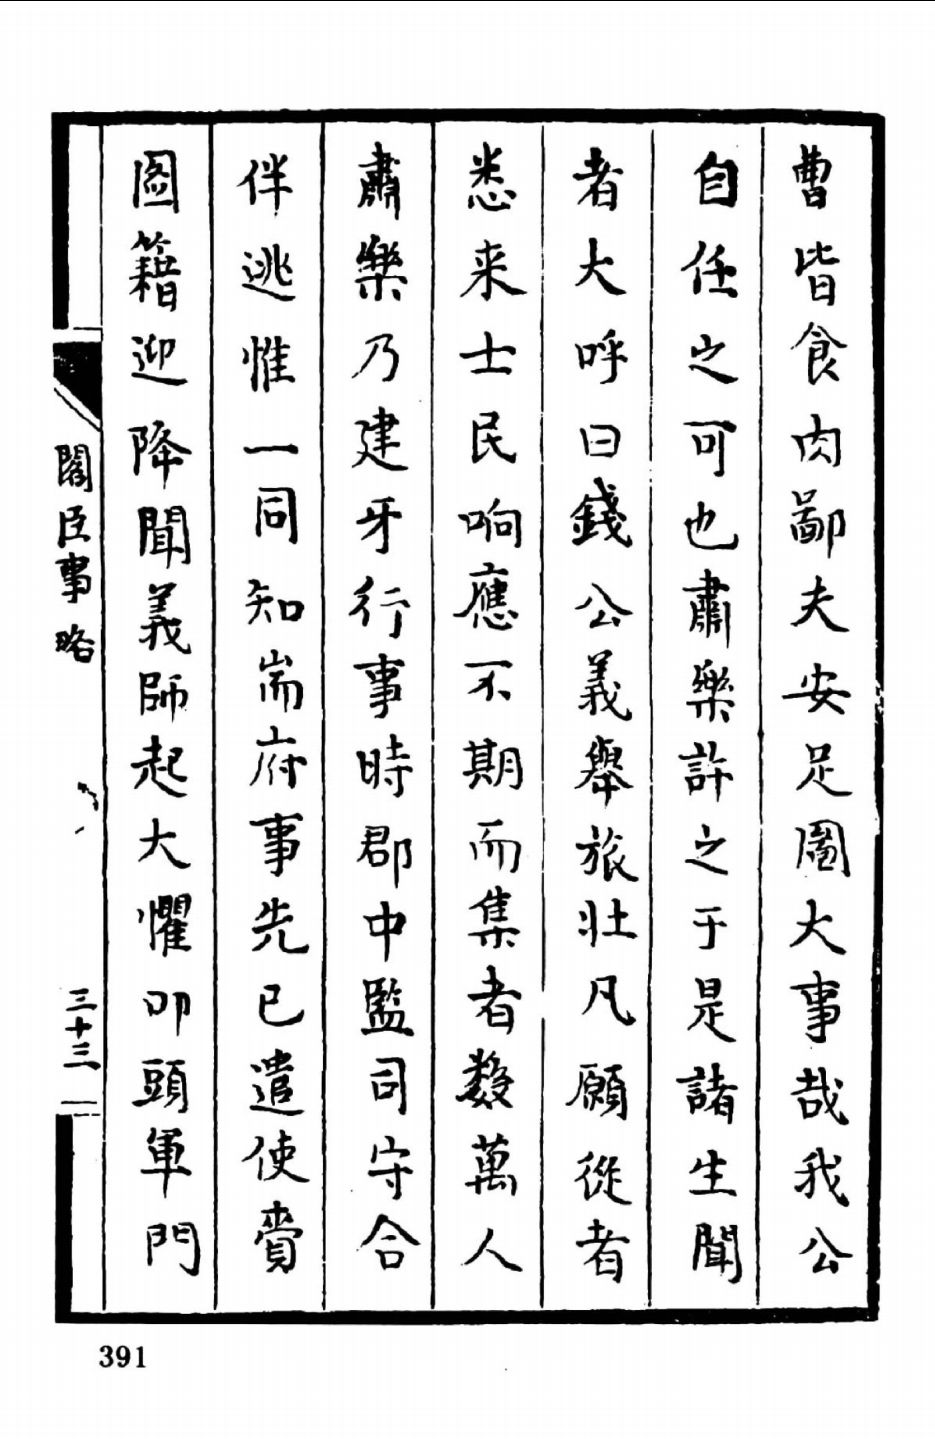 曹皆食肉鄙夫安足圖大事哉我公
自任之可也肅樂許之于是諸生聞
者大呼曰錢公義舉旅壯凡願從者
悉来士民响應不期而集者数萬人
肅樂乃建牙行事時郡中監司守合
伴逃惟一同知耑府事先已遣使賫
圖籍迎降聞義師起大懼叩頭軍門
閣臣事略
三十三
391